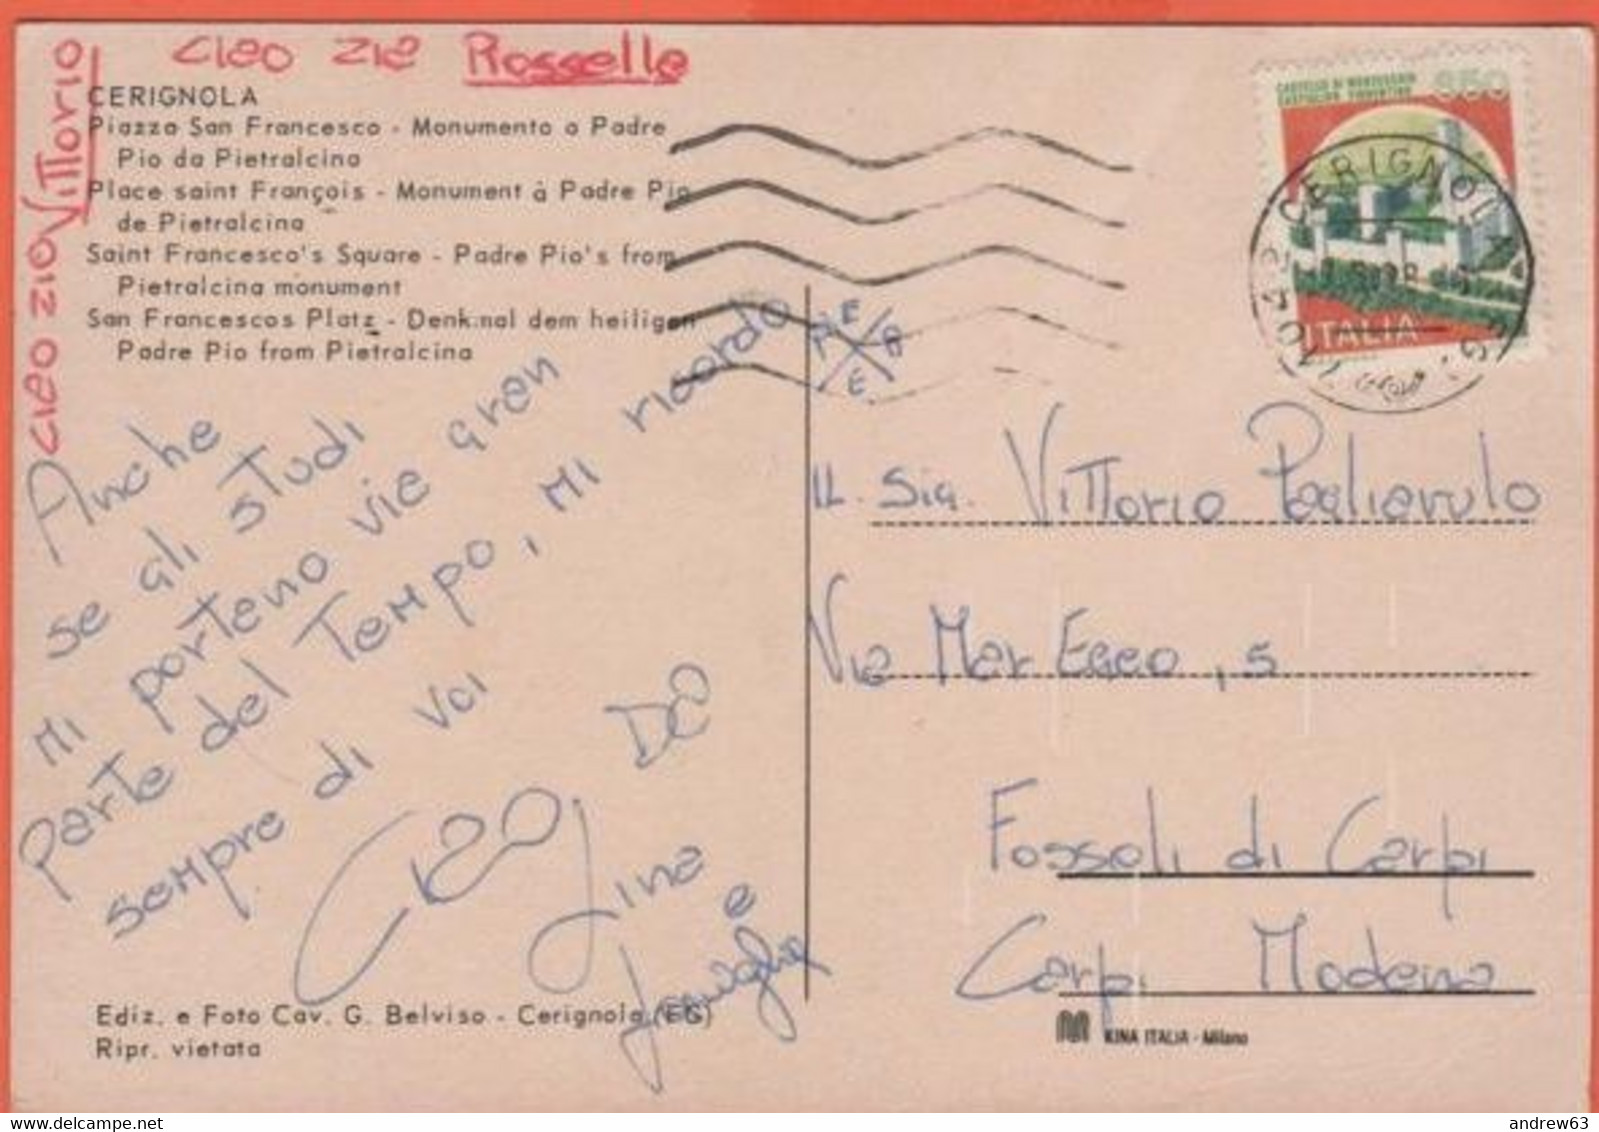 CIAO ZIA Rossella
CIAO ZIO VITTORIO
CERIGNOLA
Piazza San Francesco - Monumento a Padre
Pio da Pietralcina
Place saint François - Monument à Padre Pio
de Pietralcina
Saint Francesco's Square - Padre Pio's from
Pietralcina monument
San Francescos Platz - Denkmal dem heiligen
Padre Pio from Pietralcina
CASTELLO DI MONTECCHIO
CASTIGLION FIORENTINO
350
ITALIA
CERIGNOLA
Anche
se gli studi
mi portano via gran
parte del tempo, mi ricordo
sempre di voi
Ciao
DA
Gina
e
famiglia
Il Sig. Vittorio Pagliarulo
Via Mar Egeo, 5
Fossoli di Carpi
Carpi Modena
Ediz. e Foto Cav. G. Belviso - Cerignola (FG)
Ripr. vietata
KINA ITALIA - Milano
andrew63